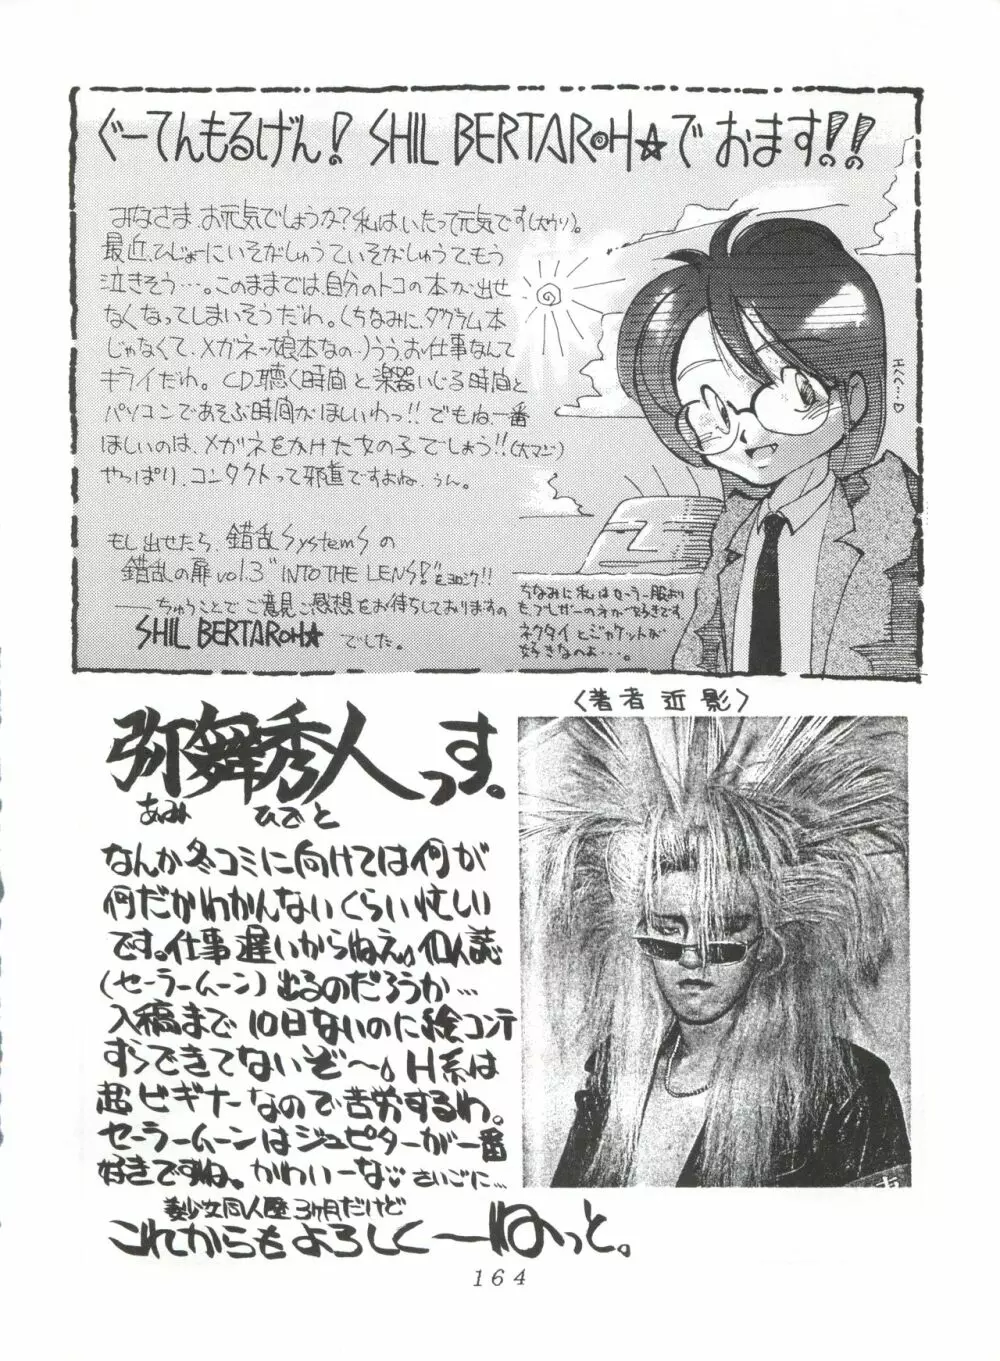 ぐーてんもるげん! SHIL BERTAROH☆でおます!!
みなさま、お元気でしょうか?私はいたって元気です(大ウソ)。
最近、ひじょーにいそがしゅうていそがしゅうて、もう
泣きそう…。このままでは自分のトコの本が出せ
なくなってしまいそうだわ。(ちなみに、ダグラム本
じゃなくて、メガネッ娘本なの…)うう、お仕事なんて
キライだわ。CD聴く時間と楽器いじる時間と
パソコンであそぶ時間がほしいわっ!!でもね、一番
ほしいのは、メガネをかけた女の子でしょう!!(大マジ)
やっぱり、コンタクトって邪道ですよね、うん。
もし出せたら、錯乱SystemSの
錯乱の扉 vol.3 "INTO THE LENS!"をヨロシク!!
――ちゅうことでご意見ご感想をお待ちしておりますの
SHIL BERTAROH☆でした。
エヘヘ…♡
ちなみに私はセーラー服より
もブレザーのほうが好きです。
ネクタイとジャケットが
好きなのよ…。
〈著者近影〉
弥舞秀人っす。
あみ ひでと
なんか冬コミに向けては何が
何だかわかんないくらい忙しい
です。仕事遅いからねえ。個人誌
(セーラームーン)出るのだろうか…
入稿まで10日ないのに絵コンテ
すらできてないぞ〜。H系は
超ビギナーなので苦労するわ。
セーラームーンはジュピターが一番
好きですね。かわいーな♡さいごに…
美少女同人歴3ヶ月だけど
これからもよろしくーねっと。
164